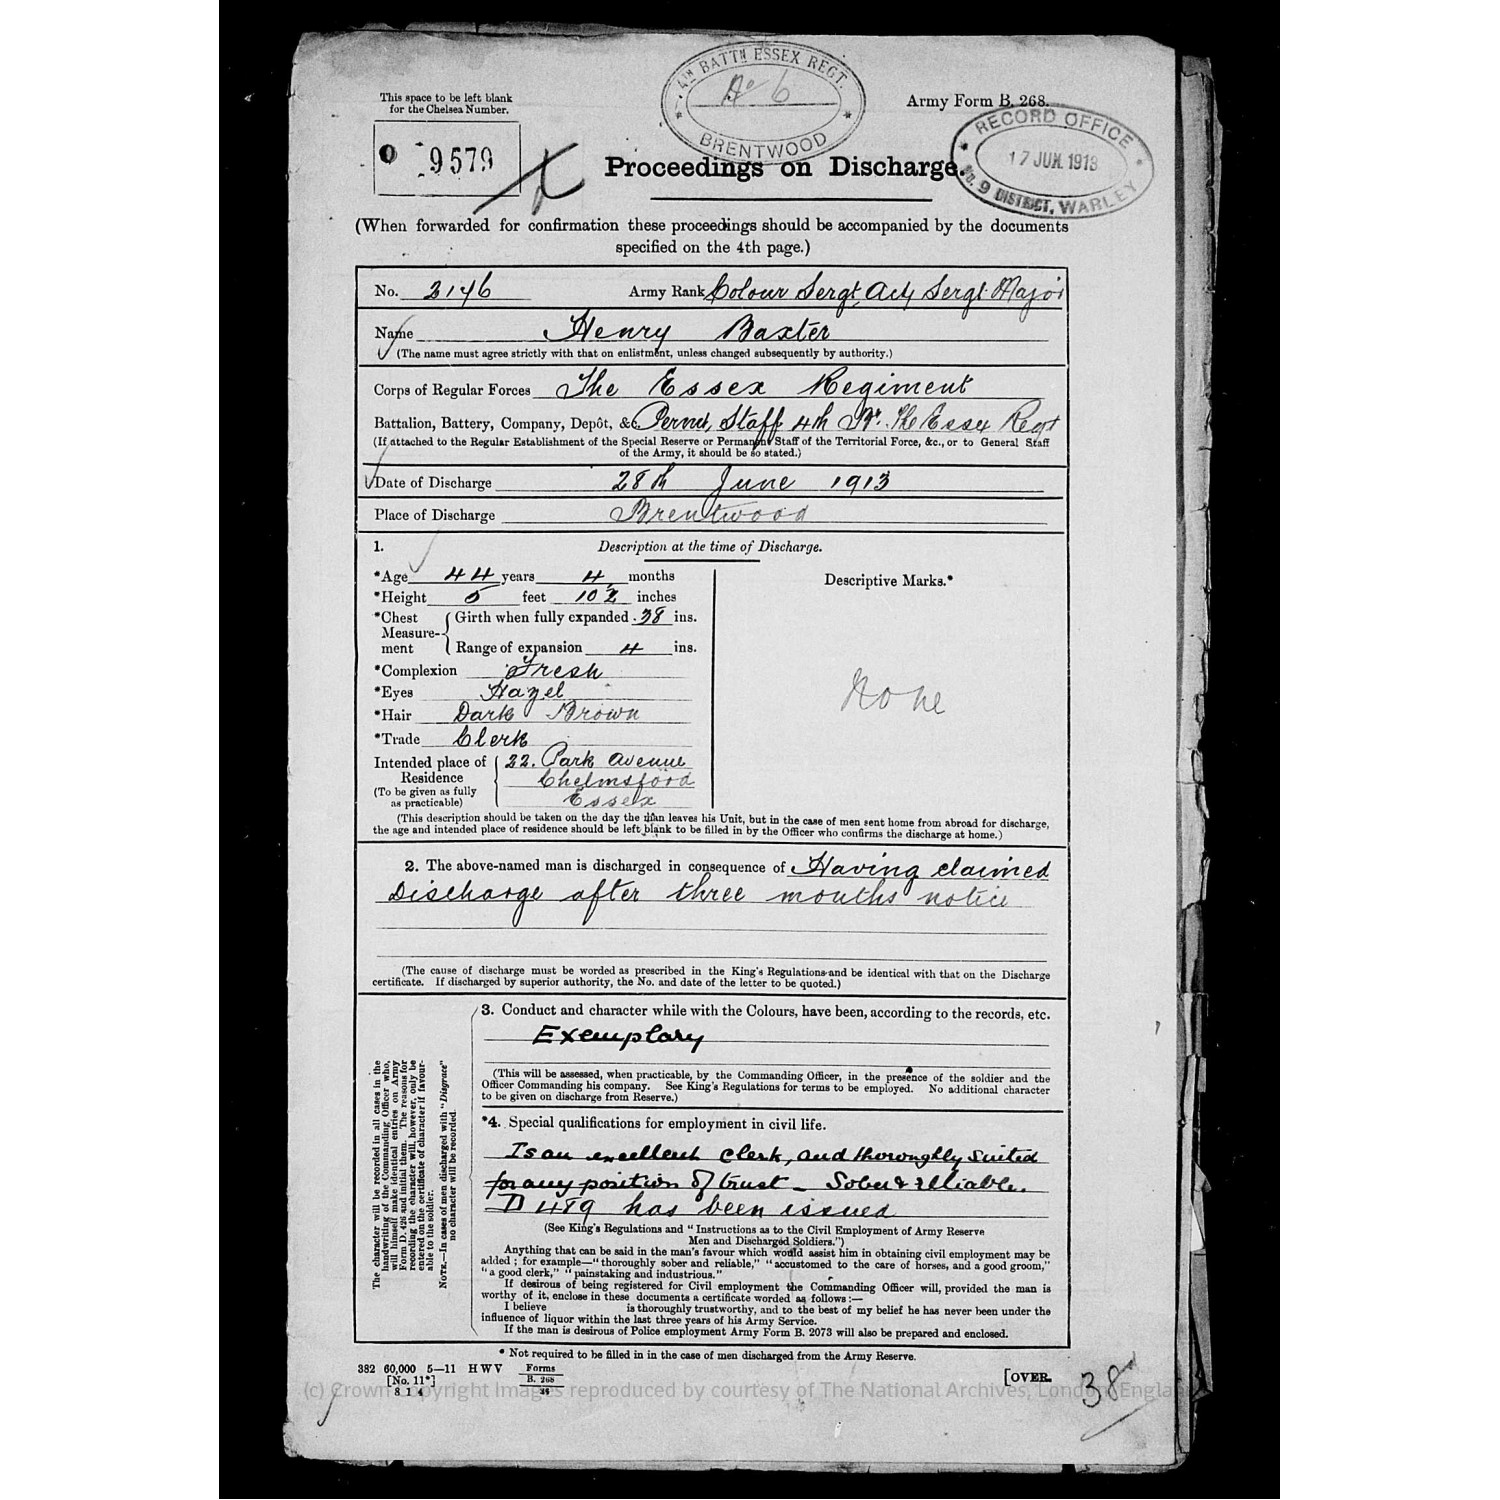 4TH BATTN ESSEX REGT.
No 6
BRENTWOOD
This space to be left blank
for the Chelsea Number.
9579
Army Form B. 268.
RECORD OFFICE
17 JUN. 1913
No. 9 DISTRICT, WARLEY
Proceedings on Discharge.
(When forwarded for confirmation these proceedings should be accompanied by the documents
specified on the 4th page.)
No. 3146 Army Rank Colour Sergt, Actg Sergt Major
Name Henry Baxter
(The name must agree strictly with that on enlistment, unless changed subsequently by authority.)
Corps of Regular Forces The Essex Regiment
Battalion, Battery, Company, Depôt, &c. Permt Staff 4th Bn. The Essex Regt
(If attached to the Regular Establishment of the Special Reserve or Permanent Staff of the Territorial Force, &c., or to General Staff
of the Army, it should be so stated.)
Date of Discharge 28th June 1913
Place of Discharge Brentwood
1. Description at the time of Discharge.
*Age 44 years 4 months
*Height 5 feet 10½ inches
*Chest Measure-ment Girth when fully expanded 38 ins.
Range of expansion 4 ins.
*Complexion Fresh
*Eyes Hazel
*Hair Dark Brown
*Trade Clerk
Intended place of Residence 22. Park Avenue
(To be given as fully Chelmsford
as practicable) Essex
Descriptive Marks.*
None
(This description should be taken on the day the man leaves his Unit, but in the case of men sent home from abroad for discharge,
the age and intended place of residence should be left blank to be filled in by the Officer who confirms the discharge at home.)
2. The above-named man is discharged in consequence of Having claimed
Discharge after three months notice
(The cause of discharge must be worded as prescribed in the King's Regulations and be identical with that on the Discharge
certificate. If discharged by superior authority, the No. and date of the letter to be quoted.)
The character will be recorded in all cases in the
handwriting of the Commanding Officer who,
will himself make identical entries on Army
Form D. 426 and initial them. The reasons for
recording the character will, however, only be
entered on the certificate of character if favour-
able to the soldier.
NOTE.—In cases of men discharged with "Disgrace"
no character will be recorded.
3. Conduct and character while with the Colours, have been, according to the records, etc.
Exemplary
(This will be assessed, when practicable, by the Commanding Officer, in the presence of the soldier and the
Officer Commanding his company. See King's Regulations for terms to be employed. No additional character
to be given on discharge from Reserve.)
*4. Special qualifications for employment in civil life.
Is an excellent clerk, and thoroughly suited
for any position of trust – Sober & reliable.
D 489 has been issued
(See King's Regulations and "Instructions as to the Civil Employment of Army Reserve
Men and Discharged Soldiers.")
Anything that can be said in the man's favour which would assist him in obtaining civil employment may be
added; for example—"thoroughly sober and reliable," "accustomed to the care of horses, and a good groom,"
"a good clerk," "painstaking and industrious."
If desirous of being registered for Civil employment the Commanding Officer will, provided the man is
worthy of it, enclose in these documents a certificate worded as follows:—
I believe is thoroughly trustworthy, and to the best of my belief he has never been under the
influence of liquor within the last three years of his Army Service.
If the man is desirous of Police employment Army Form B. 2073 will also be prepared and enclosed.
* Not required to be filled in in the case of men discharged from the Army Reserve.
382 60,000 5—11 H W V Forms
[No. 11*] B. 268
8 1 4 24
[OVER.
38
(c) Crown Copyright Images reproduced by courtesy of The National Archives, London, England